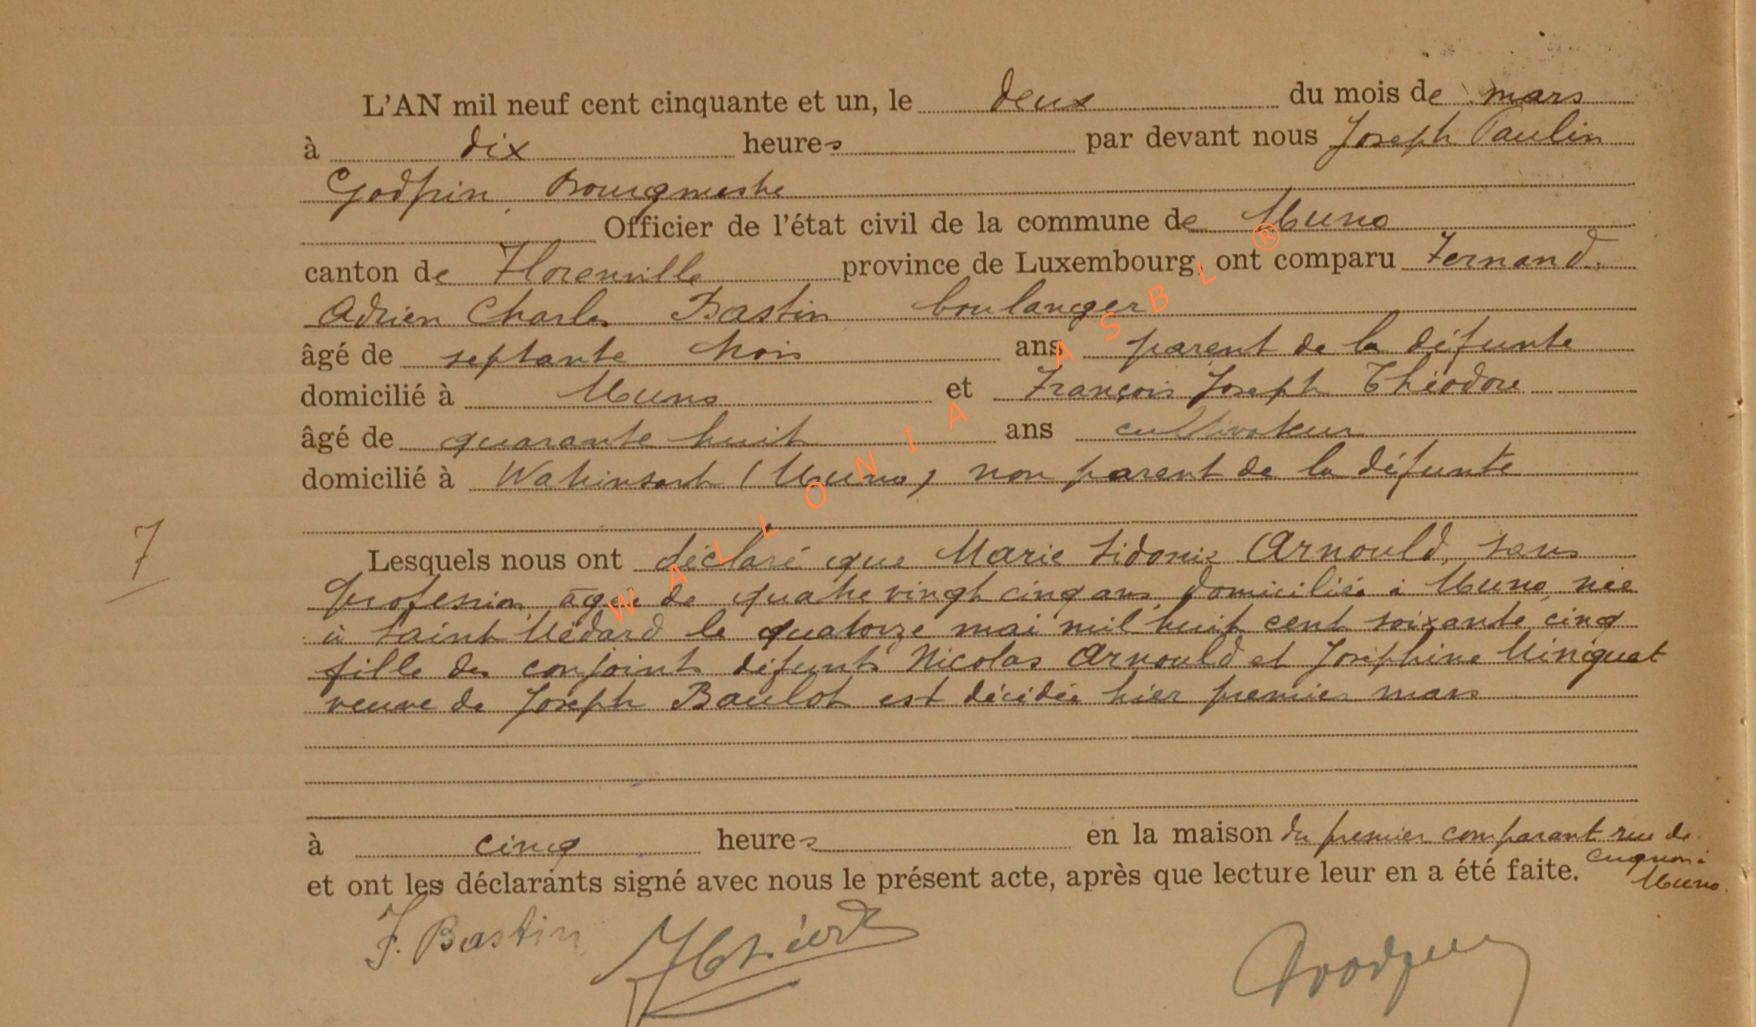 L'AN mil neuf cent cinquante et un, le deux du mois de mars
à dix heures par devant nous Joseph Paulin
Godfrin, Bourgmestre
Officier de l'état civil de la commune de Muno
canton de Florenville province de Luxembourg, ont comparu Fernand
Adrien Charles Bastin boulanger
âgé de septante trois ans parent de la défunte
domicilié à Muno et François Joseph Théodore
âgé de quarante huit ans cultivateur
domicilié à Watrinsart (Muno) non parent de la défunte
7
Lesquels nous ont déclaré que Marie Sidonie Arnould, sans
profession âgée de quatre vingt cinq ans domiciliée à Muno, née
à Saint Médard le quatorze mai mil huit cent soixante cinq
fille des conjoints défunts Nicolas Arnould et Joséphine
veuve de Joseph Baulot est décédée hier premier mars
à cinq heures en la maison du premier comparant rue de
Cugnon à
Muno.
et ont les déclarants signé avec nous le présent acte, après que lecture leur en a été faite.
F. Bastin
WALLONIA ASBL ®